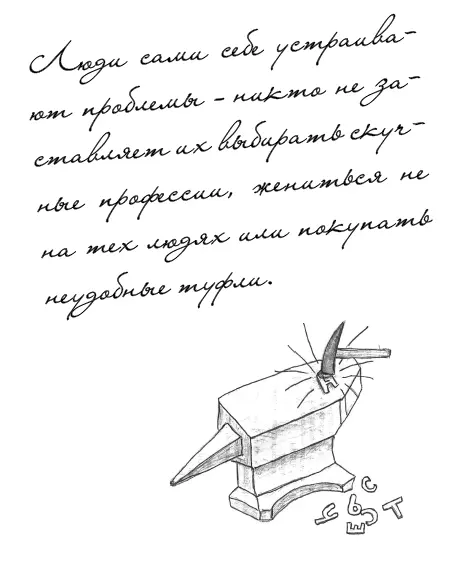 Люди сами себе устраива-
ют проблемы - никто не за-
ставляет их выбирать скуч-
ные профессии, жениться не
на тех людях или покупать
неудобные туфли.
Я
Ч Ь С
Е С Т